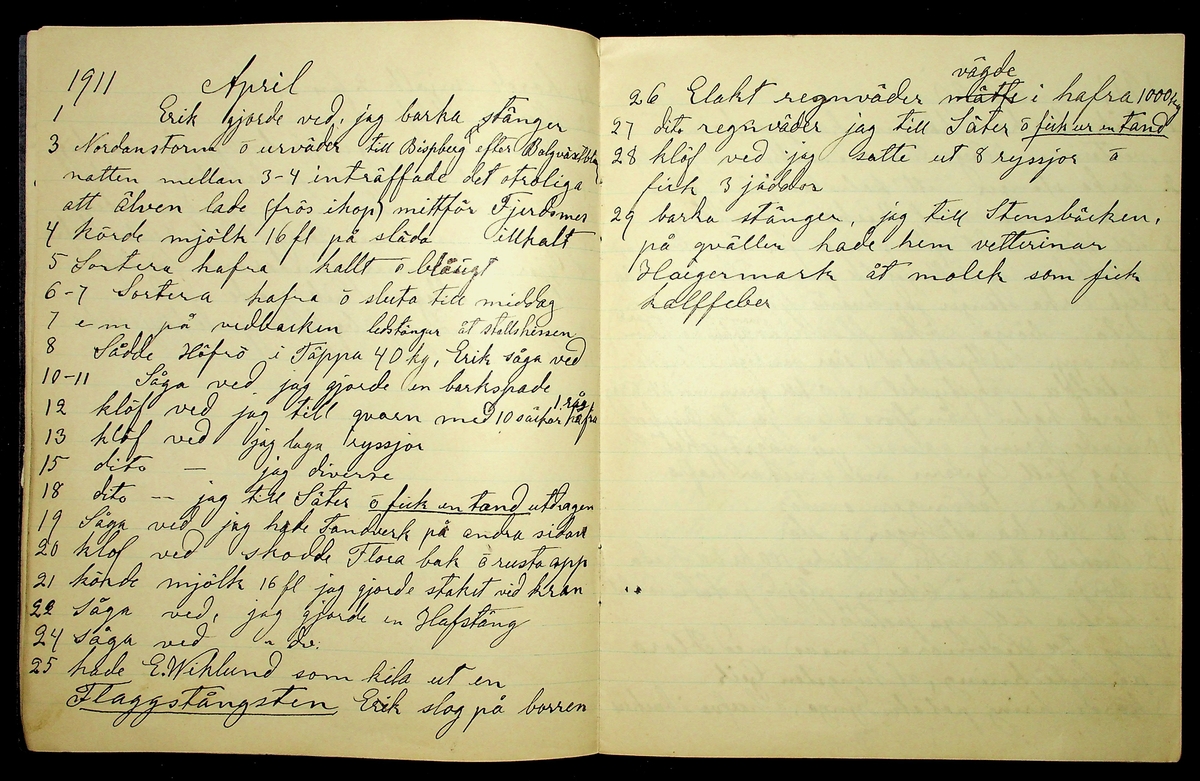 1911 April
1 Erik gjorde ved, jag barka stänger
3 Nordanstorm ö urväder till Bispberg efter
natten mellan 3-4 inträffade det otroliga
att älven lade (frös ihop) mittför Fjerdsmes
4 körde mjölk 16 fl på släda illhalt
5 Sortera hafra kallt ö blåsigt
6-7 Sortera hafra ö sluta till middag
7 e m på vedbacken ledstänger åt stallshissen
8 Sådde Höfrö i Täppa 40 kg, Erik såga ved
10-11 Såga ved jag gjorde en barkspade
12 klöf ved jag till qvarn med 10 säckar hafra 1. råg
13 klöf ved jag laga ryssjor
15 dito — jag diverse
18 dito — jag till Säter ö fick en tand utdragen
19 Såga ved jag hade Tandverk på andra sidan
20 klöf ved skodde Flora bak ö rusta opp
21 körde mjölk 16 fl jag gjorde staket vid kran
22 Såga ved, jag gjorde en Hafstång
24 såga ved " do:
25 hade E. Wiklund som kila ut en
Flaggstångsten Erik slog på borren
26 Elakt regnväder mätts vägde i hafra 1000 kg
27 dito regnväder jag till Säter ö fick ur en tand
28 klöf ved jag satte ut 8 ryssjor ö
fick 3 jäddor
29 barka stänger, jag till Stensbäcken,
på qvällen hade hem vetterinar
Haigermark åt molek som fick
kalffeber